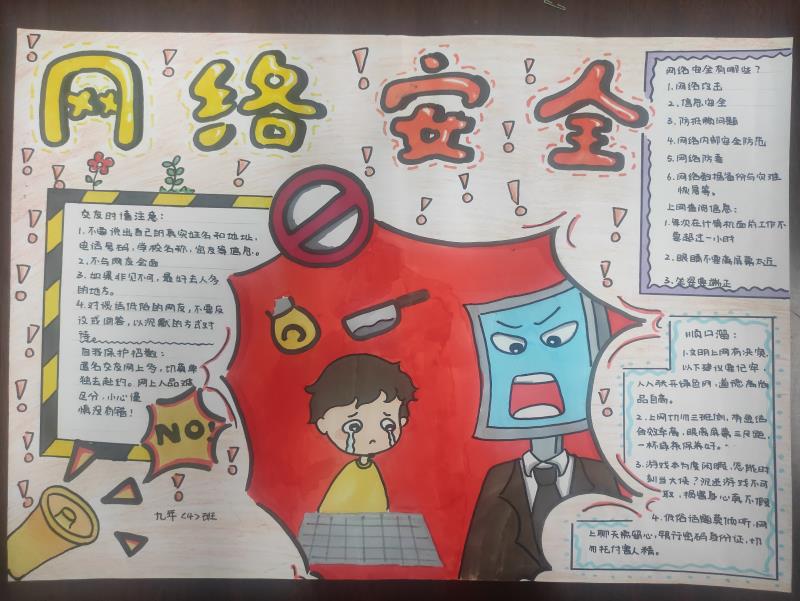 网络安全
交友时请注意：
1.不要说出自己的真实姓名和地址，
电话号码，学校名称，密友等信息。
2.不与网友会面
3.如果非见不可，最好去人多
的地方。
4.对谈话低俗的网友，不要反
议或回答，以沉默的方式对
待。
自我保护招数：
匿名交友网上多，切莫单
独去赴约。网上人品难
区分，小心谨
慎没有错！
NO!
九年<4>班
网络安全有哪些？
1.网络攻击
2.信息安全
3.防抵赖问题
4.网络内部安全防范
5.网络防毒
6.网络数据备份与灾难
恢复等。
上网查阅信息：
1.每次在计算机面前工作不
要超过一小时
2.眼睛不要离屏幕太近
3.坐姿要端正
顺口溜：
1.文明上网有决策，
以下建议需记牢，
人人快来绿色网，道德高尚
品自高。
2.上网切勿三班倒，有益适
合效率高，眼离屏幕三尺跑，
一杯绿茶保养好。
3.游戏本为度闲暇，怎能时
刻当大侠？沉迷游戏不可
取，损害身心真不假
4.低俗话题莫倾听，网
上聊天需留心，银行密码身份证，切
勿托付害人精。